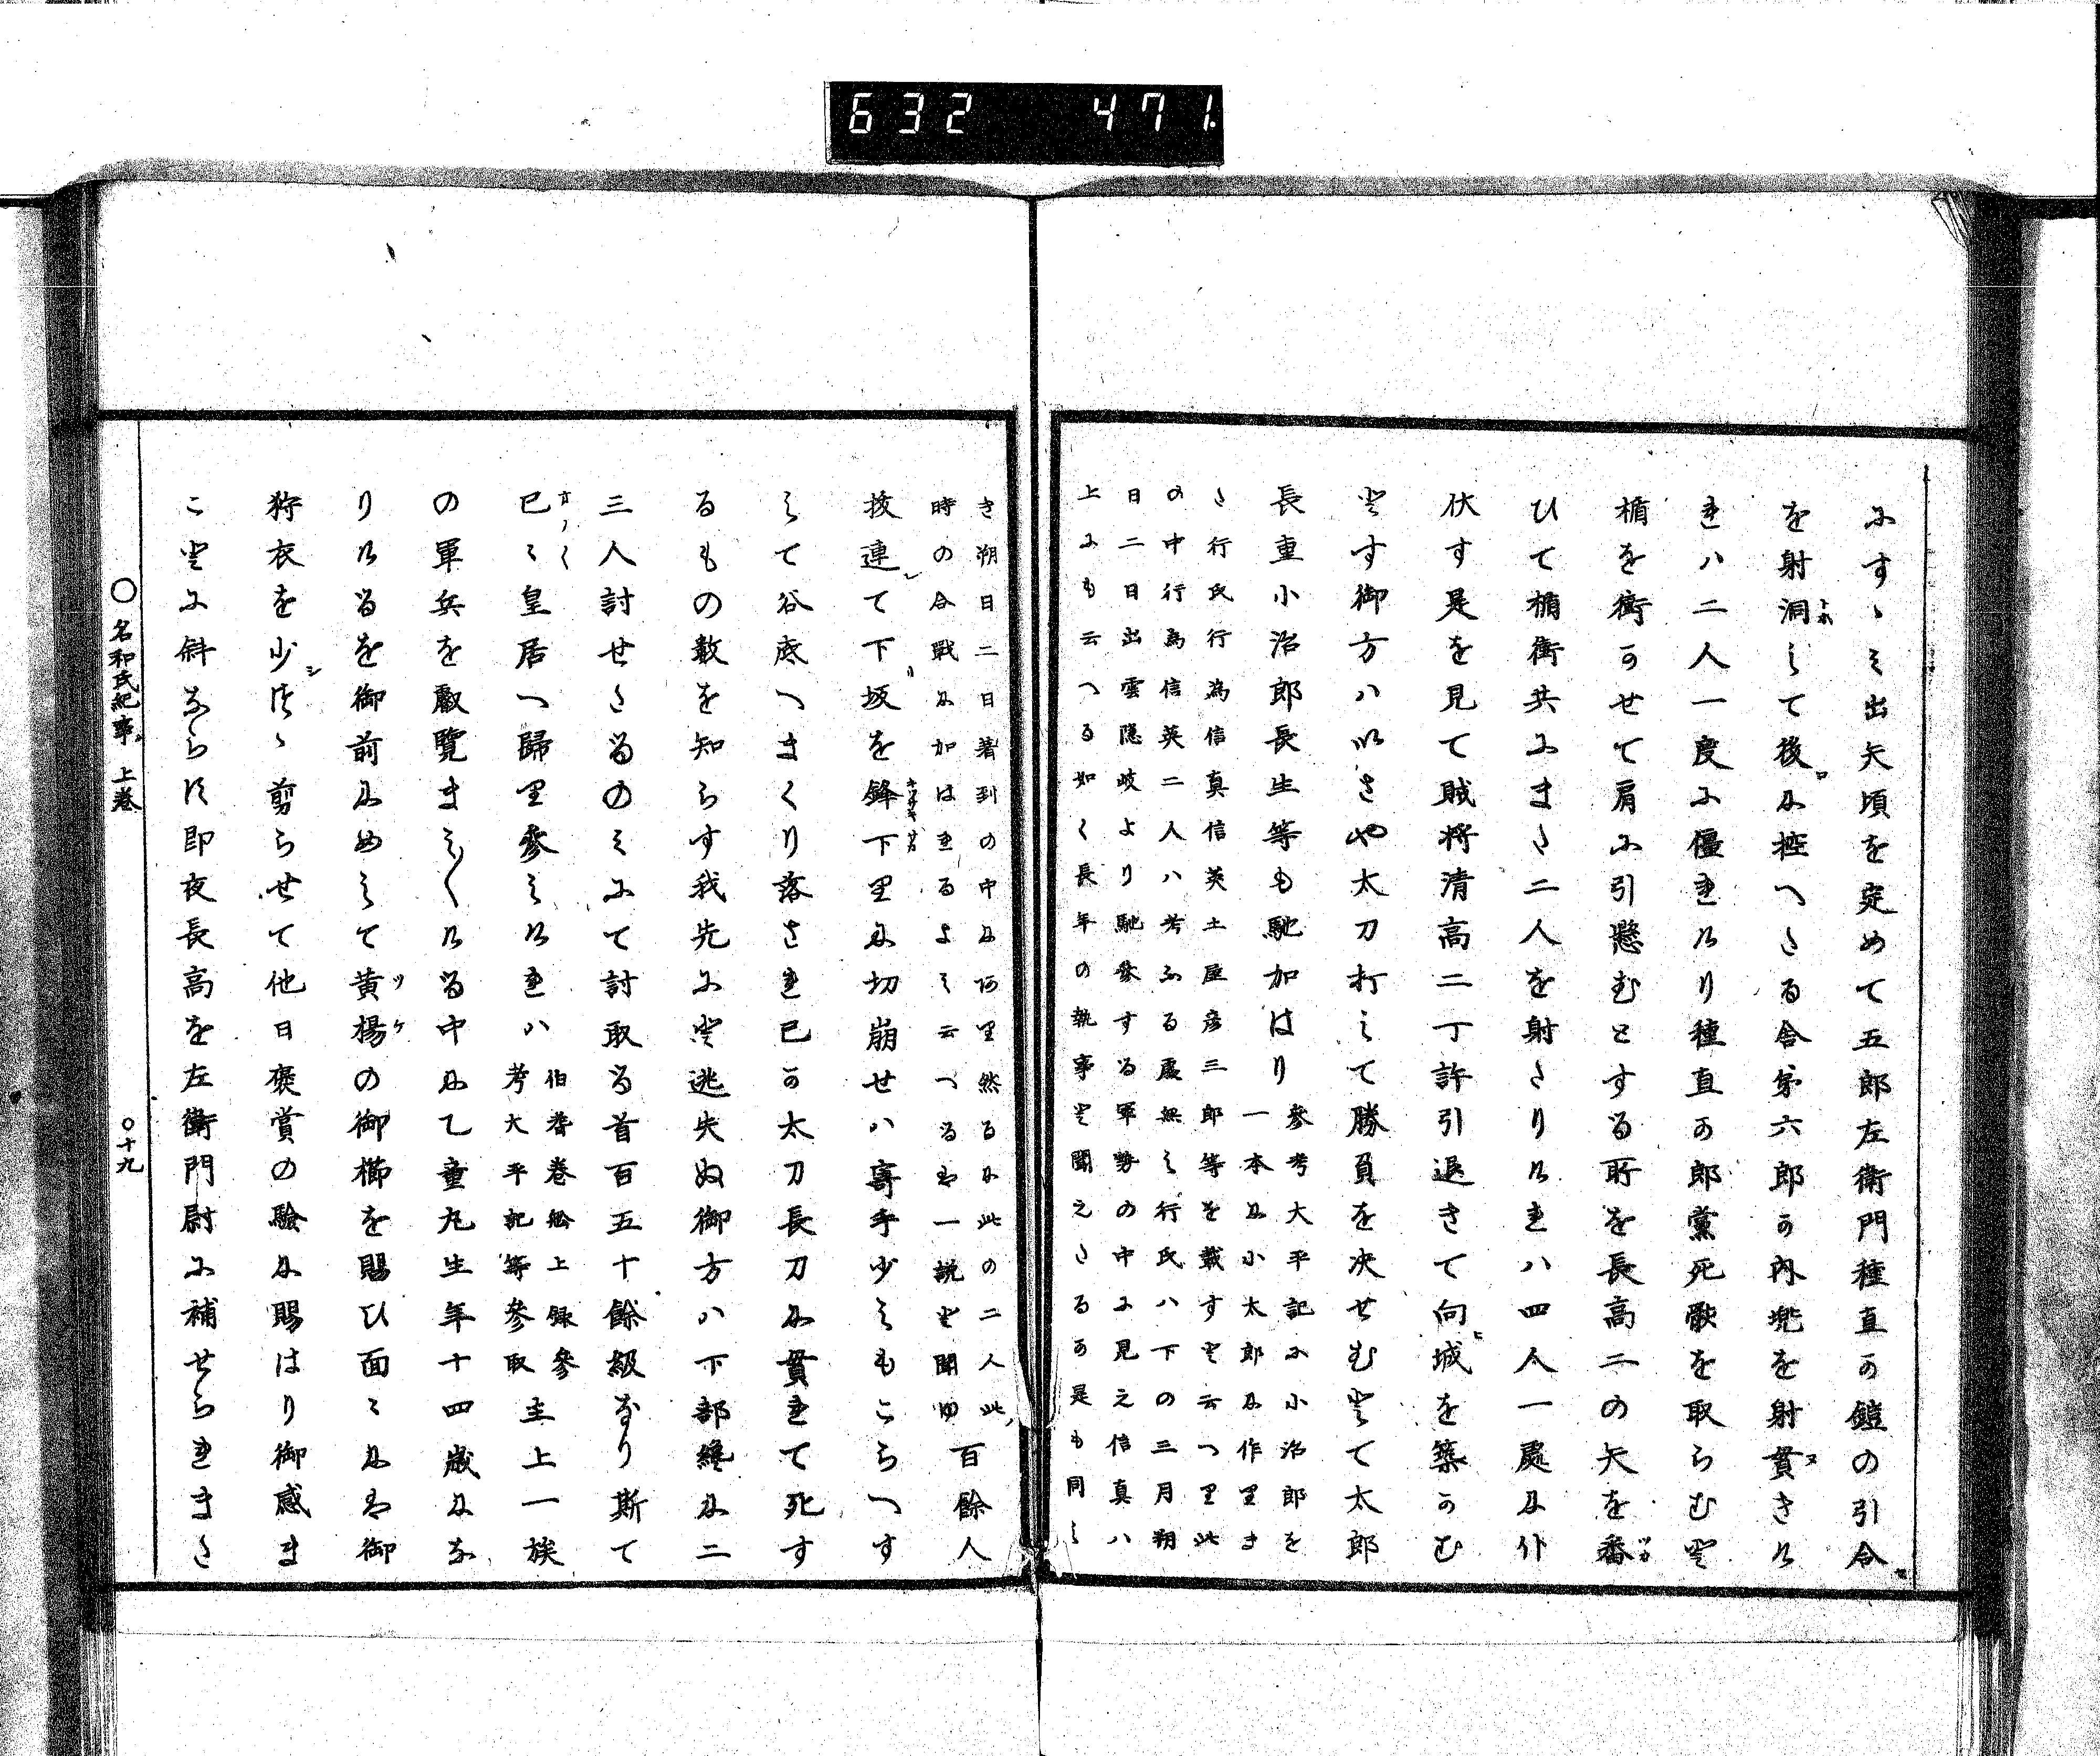 632 471.
にすゝミ出矢頃を定めて五郎左衛門種直の鎧の引合
を射洞して後に控へたる舎弟六郎の内兜を射貫きけ
れハ二人一度に僵れけり種直の郎黨死骸を取らむと
楯を衝かせて肩に引懸むとする所を長高二の矢を番
ひて楯衝共にまた二人を射たりけれハ四人一處に仆
伏す是を見て賊将清高二丁許引退きて向城を築かむ
とす御方ハいさや太刀打して勝負を决せむとて太郎
長重小治郎長生等も馳加はり
參考大平記に小治郎を
一本に小太郎に作りま
た行氏行為信真信英土屋彦三郎等を載すと云つり此
の中行為信英二人ハ考ふる處無し行氏ハ下の三月朔
日二日出雲隠岐より馳參する軍勢の中に見え信真ハ
上にも云つる如く長年の執事と聞えたるか是も同し
き朔日二日著到の中に何り然るに此の二人此
時の合戦に加はれるよし云つるは一説と聞ゆ
百餘人
抜連て下坂を鋒下りに切崩せハ寄手少しもこらへす
して谷底へまくり落され已か太刀長刀に貫れて死す
るもの數を知らす我先にと逃失ぬ御方ハ下部纔に二
三人討せたるのミにて討取る首百五十餘級なり斯て
已〻皇居へ歸り參しけれハ
伯耆巻舩上録參
考大平記等參取
主上一族
の軍兵を叡覧ましましける中に乙童丸生年十四歳にな
りけるを御前にめして黄楊の御櫛を賜ひ面〻には御
狩衣を少しつゝ剪らせて他日褒賞の驗に賜はり御感ま
ことに斜ならす即夜長高を左衛門尉に補せられまた
〇名和氏紀事 上巻
〇十九